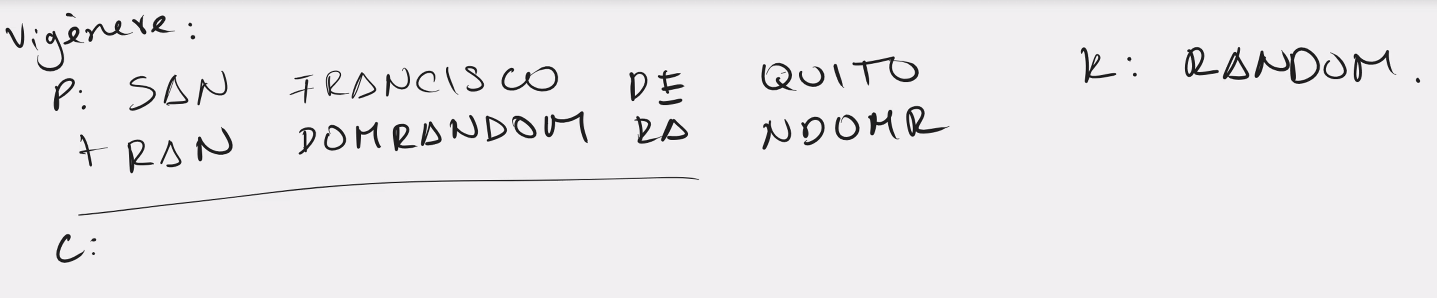 Vigènere:
P: SAN FRANCISCO DE QUITO K: RANDOM.
+ RAN DOMRANDOM RA NDOMR
C: